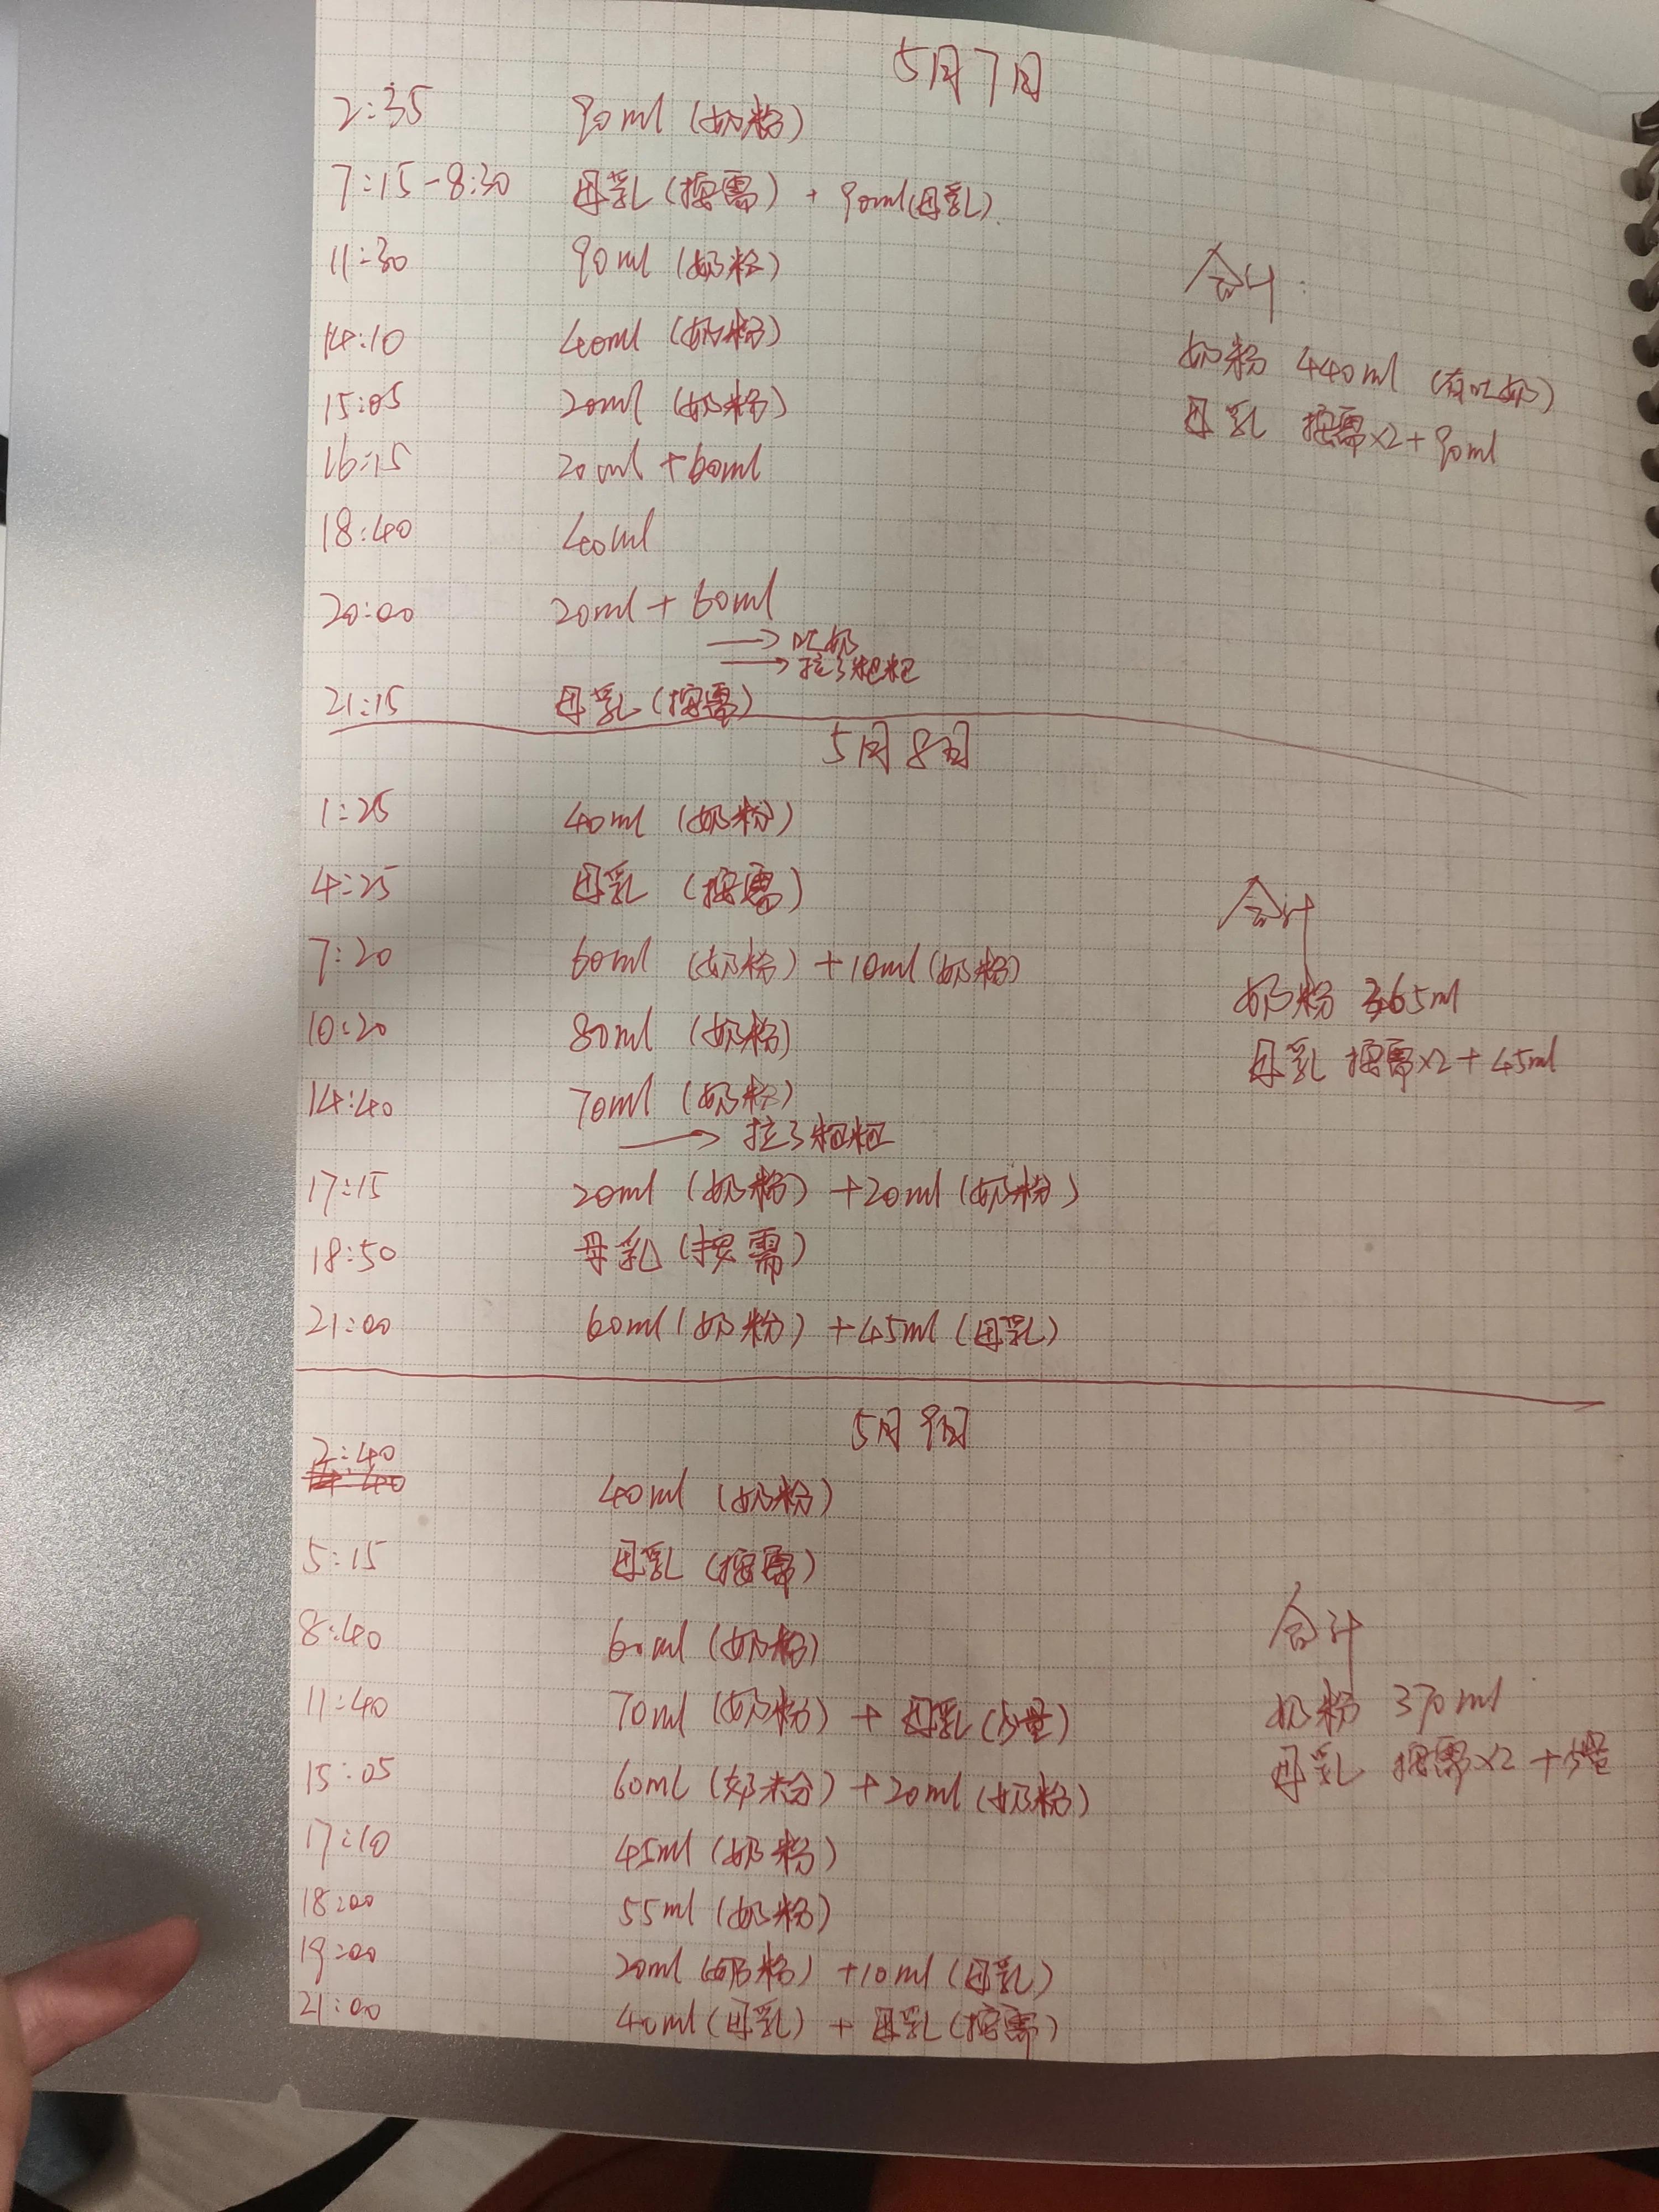 5月7日
2:35 90ml (奶粉)
7:15-8:30 母乳(按需) + 90ml(母乳)
11:30 90ml (奶粉)
14:10 40ml (奶粉)
15:05 20ml (奶粉)
16:15 20ml + 60ml
18:40 40ml
20:00 20ml + 60ml
→ 吐奶
→ 拉了粑粑
21:15 母乳(按需)
合计:
奶粉 440ml (有吐奶)
母乳 按需×2+90ml
5月8日
1:25 40ml (奶粉)
4:25 母乳 (按需)
7:20 60ml (奶粉) +10ml(奶粉)
10:20 80ml (奶粉)
14:40 70ml (奶粉)
→ 拉了粑粑
17:15 20ml (奶粉) +20ml (奶粉)
18:50 母乳 (按需)
21:00 60ml(奶粉) +45ml (母乳)
合计
奶粉 365ml
母乳 按需×2+45ml
5月9日
2:40
40ml (奶粉)
5:15 母乳 (按需)
8:40 60ml (奶粉)
11:40 70ml (奶粉) + 母乳(少量)
15:05 60ml (奶粉) +20ml (奶粉)
17:10 45ml (奶粉)
18:00 55ml (奶粉)
19:00 20ml (奶粉) +10ml (母乳)
21:00 40ml(母乳) + 母乳(按需)
合计
奶粉 370ml
母乳 按需×2 +少量